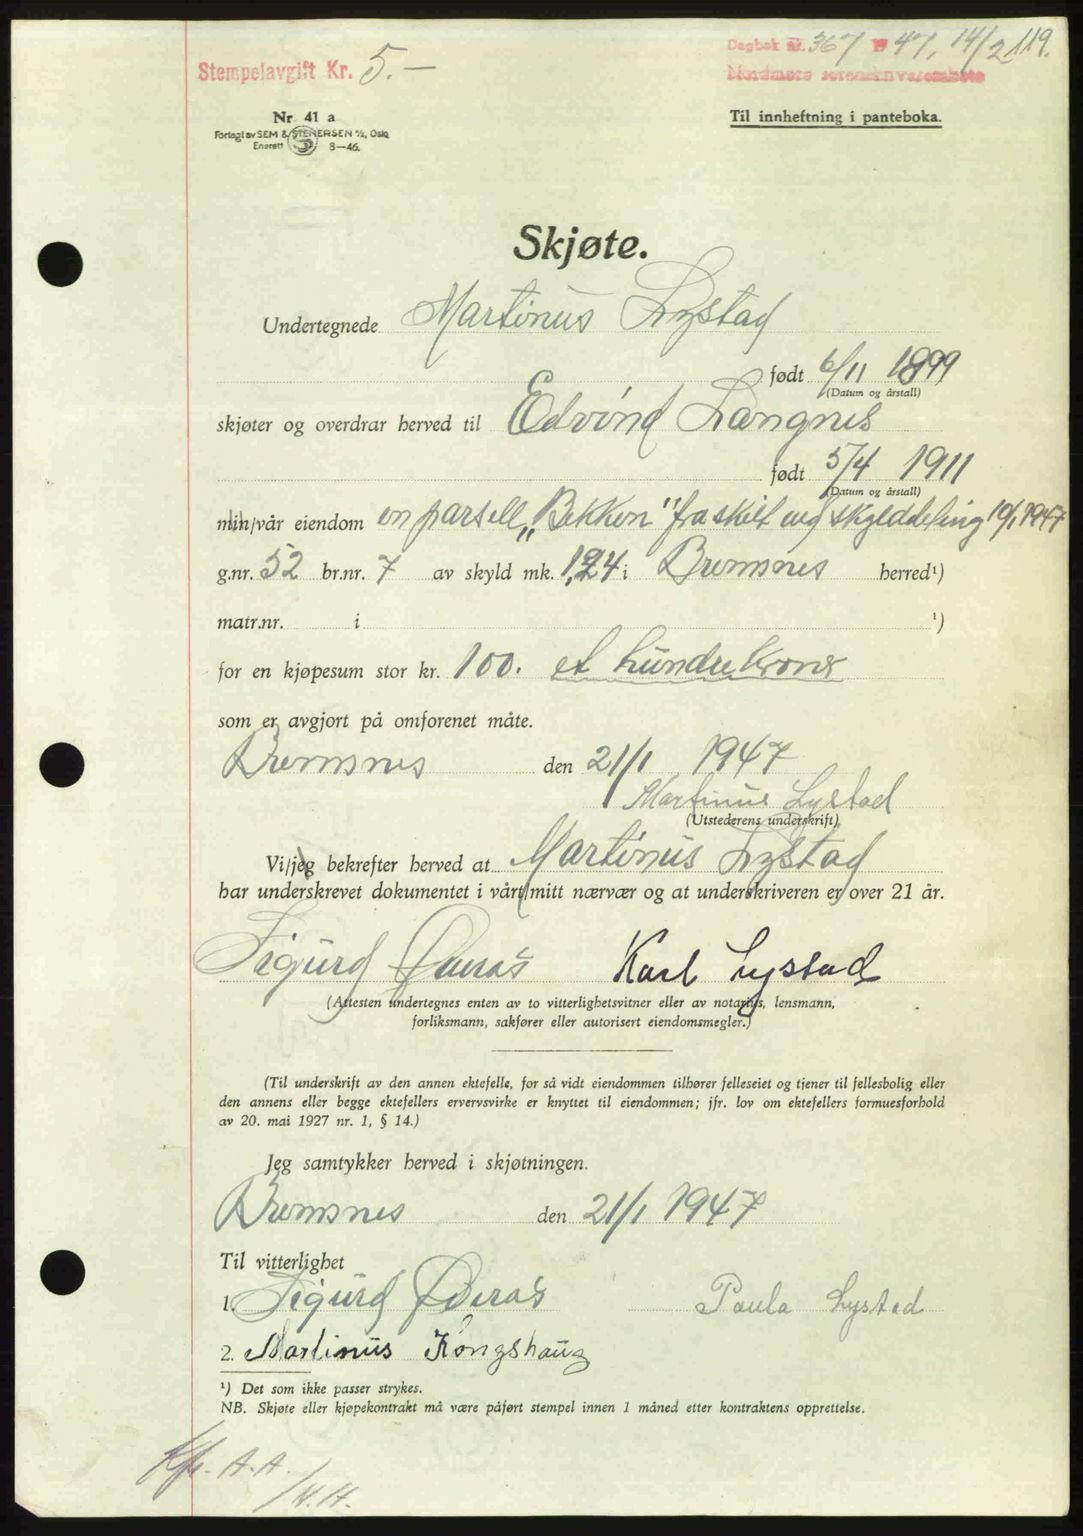 Stempelavgift Kr. 5.—
Dagbok nr. 367 1947, 14/2 119.
Nordmøre sorenskriverembete
Nr. 41 a
Forlagt av SEM & STENERSEN A/S, Oslo
Enerett 8—46.
Til innheftning i panteboka.
Skjøte.
Undertegnede Martinus Lystad
født 6/11 1899
(Datum og årstall)
skjøter og overdrar herved til Edvind Langnes
født 5/4 1911
(Datum og årstall)
min/vår eiendom en parsell „Bekken" fraskilt ved skylddeling 10/1 1947
g.nr. 52 br.nr. 7 av skyld mk. 1,24 i Bremsnes herred¹)
matr.nr. i ¹)
for en kjøpesum stor kr. 100. et hundre kroner
som er avgjort på omforenet måte.
Bremsnes den 21/1 1947
Martinus Lystad
(Utstederens underskrift)
Vi/jeg bekrefter herved at Martinus Lystad
har underskrevet dokumentet i vårt/mitt nærvær og at underskriveren er over 21 år.
Sigurd Øveraas Karl Lystad
(Attesten undertegnes enten av to vitterlighetsvitner eller av notarius, lensmann,
forliksmann, sakfører eller autorisert eiendomsmegler.)
(Til underskrift av den annen ektefelle, for så vidt eiendommen tilhører felleseiet og tjener til fellesbolig eller
den annens eller begge ektefellers ervervsvirke er knyttet til eiendommen; jfr. lov om ektefellers formuesforhold
av 20. mai 1927 nr. 1, § 14.)
Jeg samtykker herved i skjøtningen.
Bremsnes den 21/1 1947
Til vitterlighet
1. Sigurd Øveraas Paula Lystad
2. Martinus Kongshaug
¹) Det som ikke passer strykes.
NB. Skjøte eller kjøpekontrakt må være påført stempel innen 1 måned etter kontraktens opprettelse.
A.A.
/N.H.